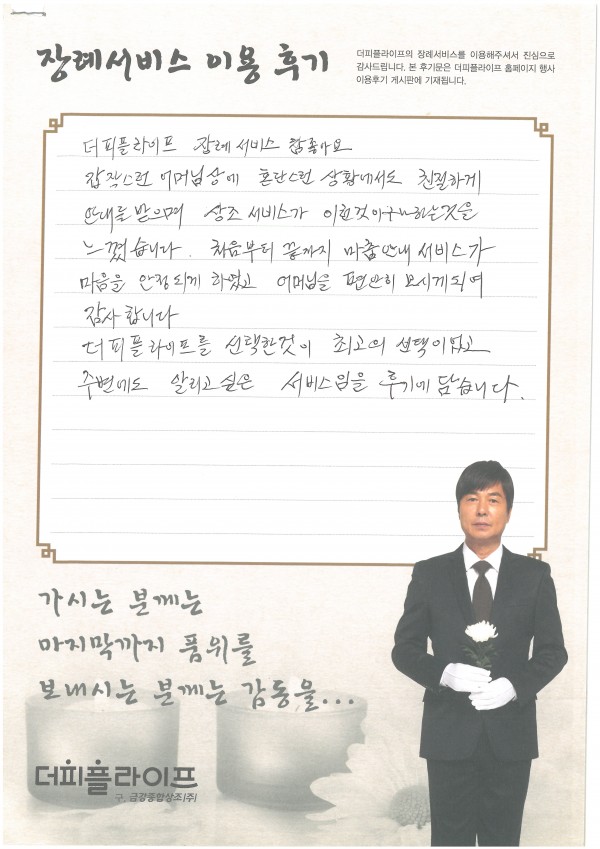 장례서비스 이용 후기
더피플라이프의 장례서비스를 이용해주셔서 진심으로
감사드립니다. 본 후기문은 더피플라이프 홈페이지 행사
이용후기 게시판에 기재됩니다.
더피플라이프 장례서비스 참좋아요
갑작스런 어머님상에 혼란스런 상황에서도 친절하게
안내를 받으며 상조 서비스가 이런것이구나하는것을
느꼈습니다. 처음부터 끝까지 맞춤안내 서비스가
마음을 안정되게 하였고 어머님을 편안히 모시게되며
감사합니다
더피플라이프를 선택한것이 최고의 선택이었고
주변에도 알리고싶은 서비스임을 후기에 담습니다.
가시는 분께는
마지막까지 품위를
보내시는 분께는 감동을...
더피플라이프
구. 금강종합상조(주)